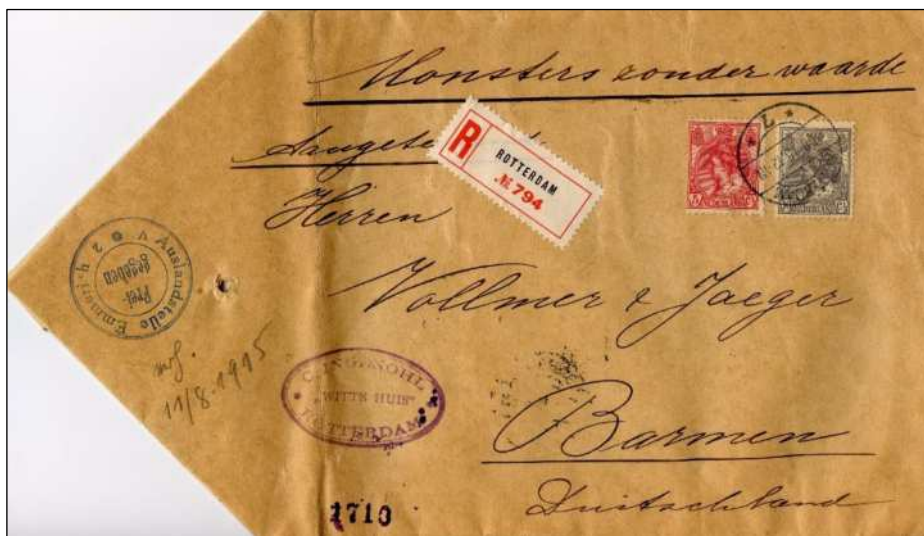 Monsters zonder waarde
Aangete
R
ROTTERDAM
№ 794
Herren
Vollmer & Jaeger
Barmen
Duitschland
Auslandstelle Emmerich 2
Frei-
gegeben
11/8-1915
C. INGENOHL
"WITTE HUIS"
ROTTERDAM
1710